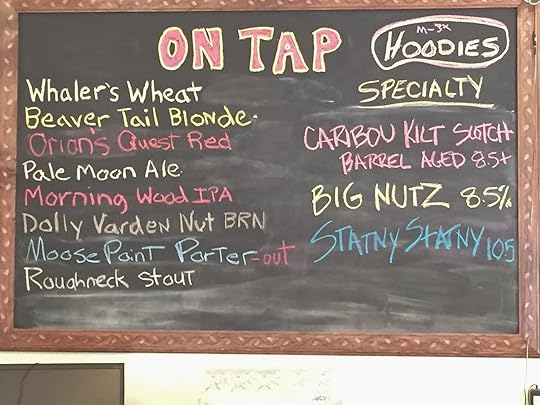 ON TAP
Whaler's Wheat
Beaver Tail Blonde.
Orion's Quest Red
Pale Moon Ale
Morning Wood IPA
Dolly Varden Nut BRN
Moose Point Porter-out
Roughneck Stout
M-3X
HOODIES
SPECIALTY
CARIBOU KILT SCOTCH
BARREL AGED 8.5+
BIG NUTZ 8.5%
STATNY STATNY 105